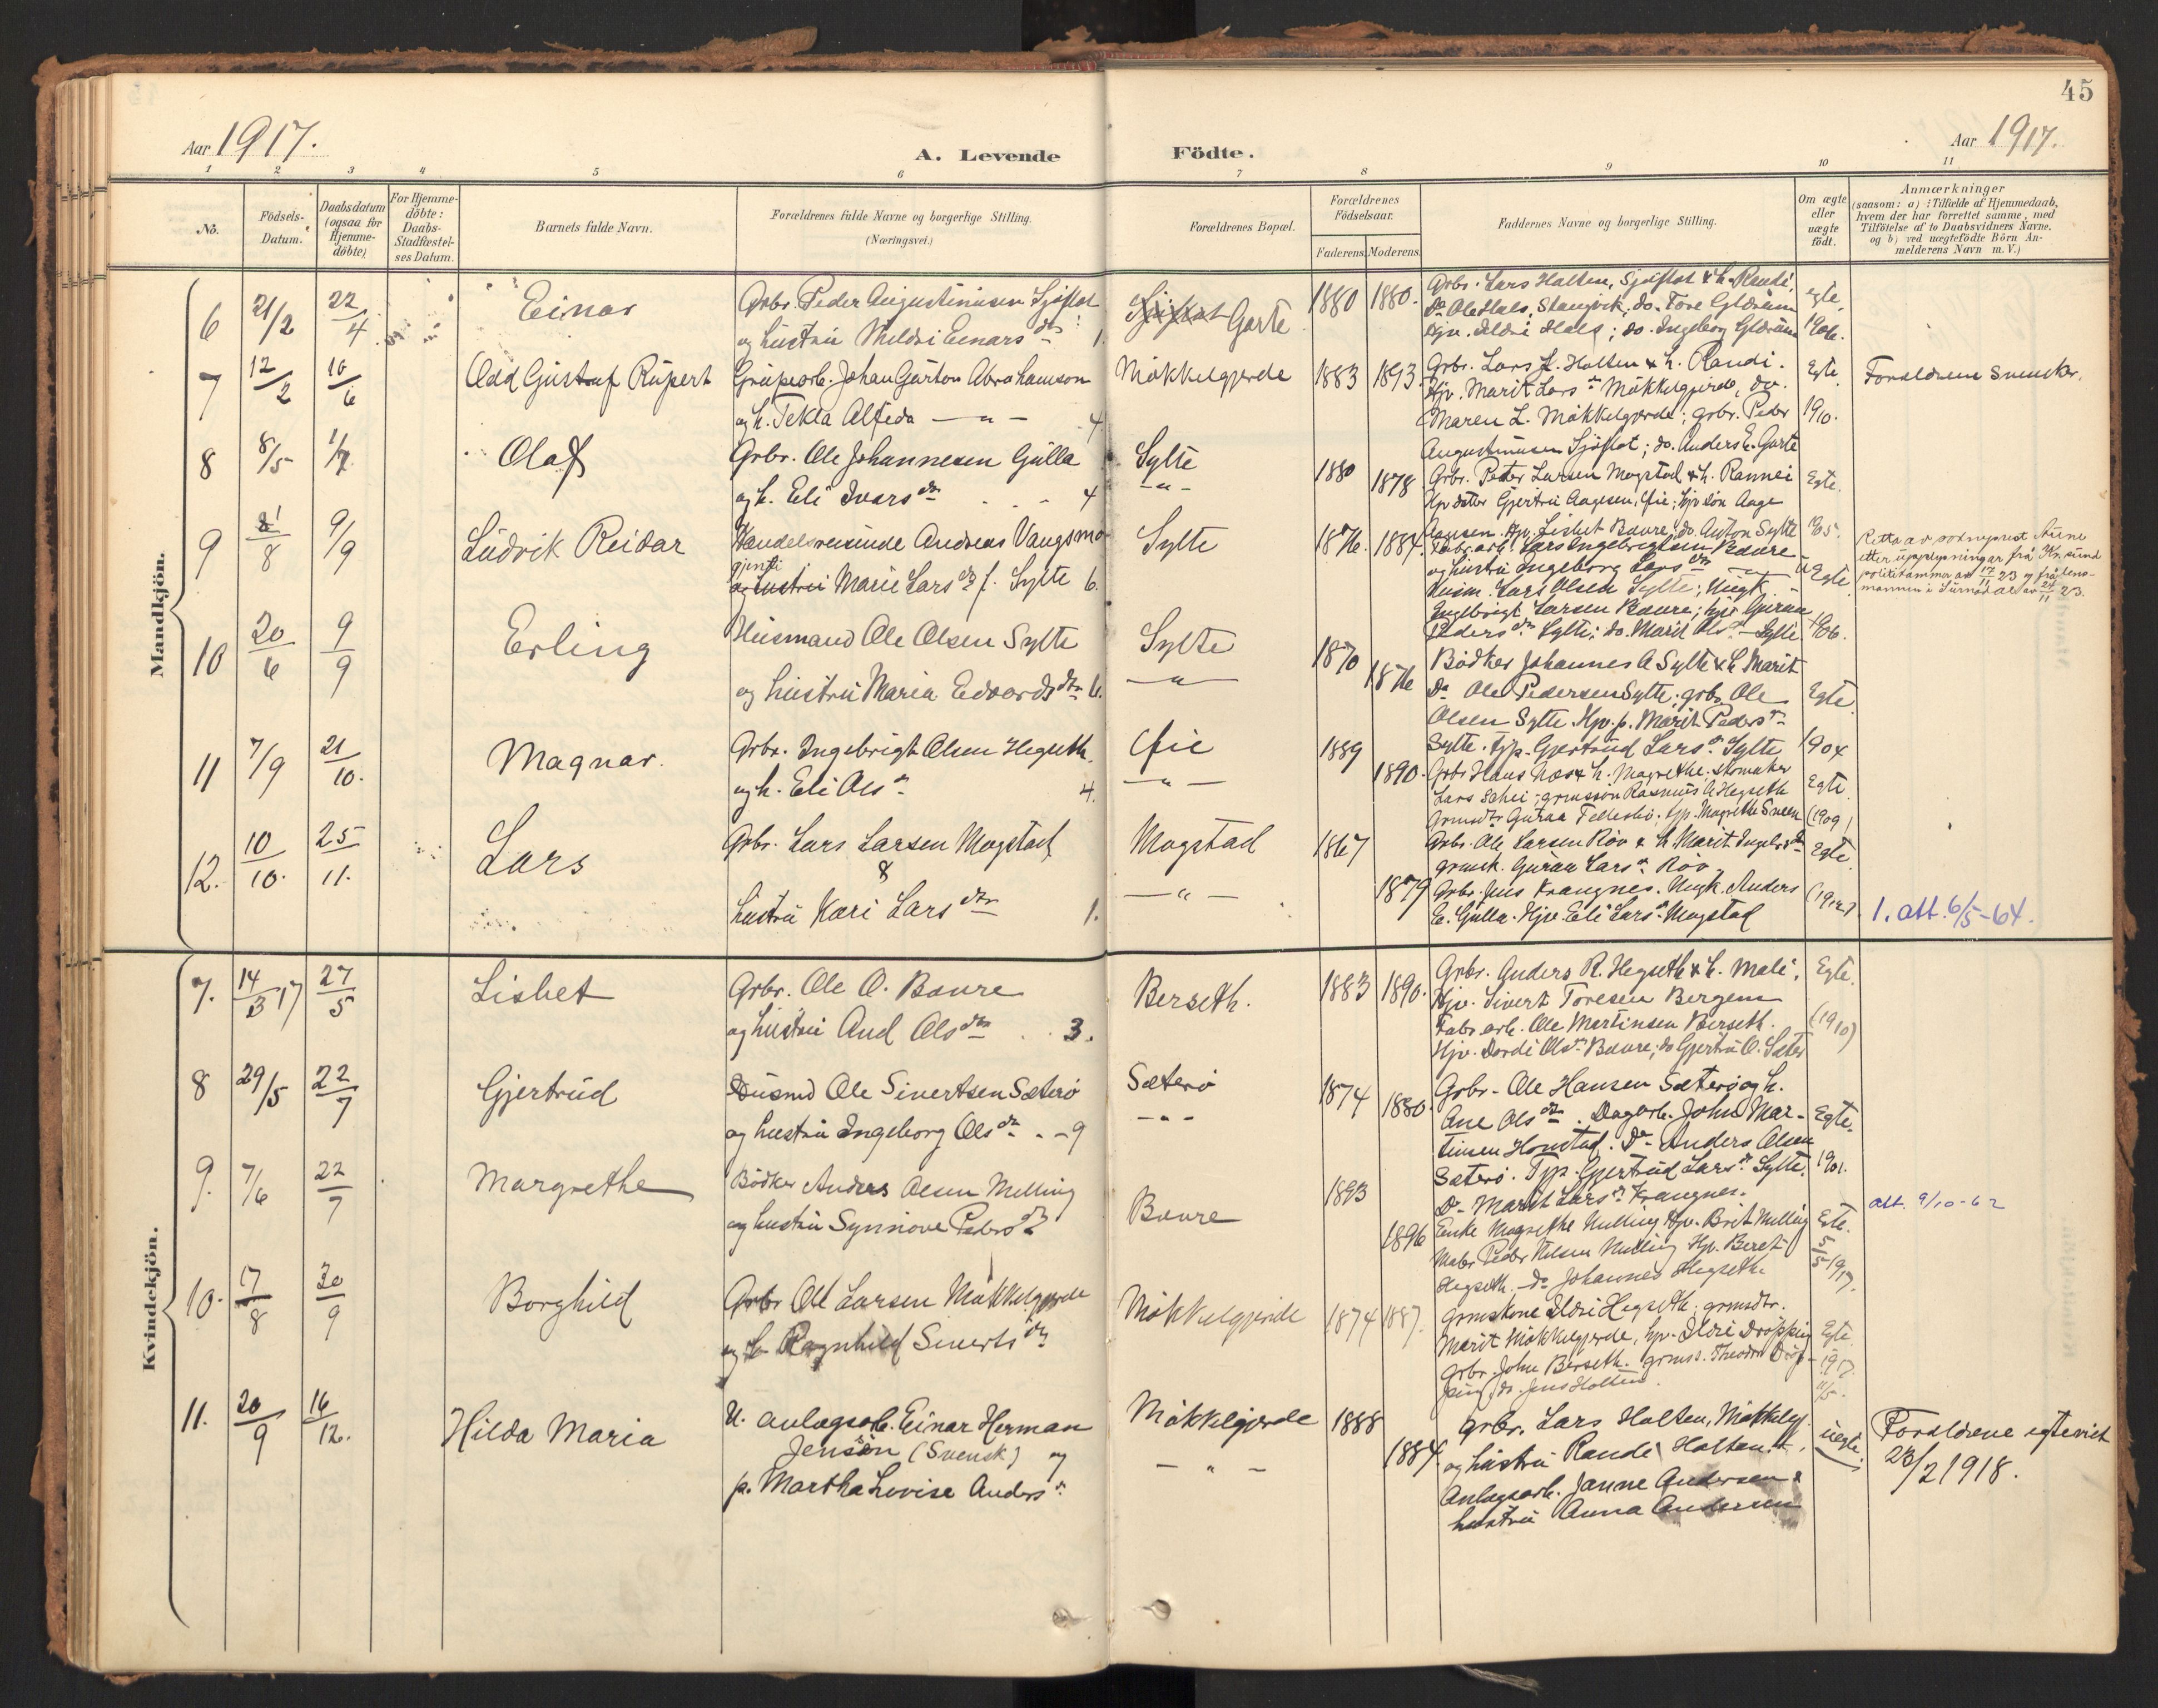 45
Aar 1917.
A. Levende Födte.
Aar 1917.
1 2 3 4 5 6 7 8 9 10 11
No.
Födsels-Datum.
Daabsdatum (ogsaa for Hjemme-döbte)
For Hjemme-döbte: Daabs-Stadfæstel-ses Datum.
Barnets fulde Navn.
Forældrenes fulde Navne og borgerlige Stilling.
(Næringsvei.)
Forældrenes Bopæl.
Forældrenes Födselsaar.
Faderens. Moderens.
Faddernes Navne og borgerlige Stilling.
Om ægte eller uægte födt.
Anmærkninger
(saasom: a) i Tilfælde af Hjemmedaab,
hvem der har forrettet samme, med
Tilföielse af to Daabsvidners Navne.
og b) ved uægtefödte Börn An-
melderens Navn m. V.)
Mandkjön.
6 21/2 22/4 Einar
Grbr. Peder Augustinusen Sjøflot
og hustru Mildri Einars dtr 1.
Sjøflot Garte
1880 1880.
Grbr. Lars Halten, Sjøflot & h. Randi,
Do Ole Hals, Stangvik, do. Tore
Hjv. Ildri Hals; do. Ingeborg
egte, 1906.
7 12/2 10/6 Odd Gustaf Rupert
Grubearb. Johan Garton Abrahamson
og h. Tekla Alfeda — " — 4.
Mökkelgjerde
1883 1893.
Grbr. Lars L. Halten & h. Randi.
Hjv. Marit Lars dr Mökkelgjerde, do.
Maren L. Mökkelgjerde; grbr. Peder
Augustinusen Sjöflot; do. Anders E. Garte
Egte 1910.
Forældrene svensker.
8 8/5 1/7 Olaf
Grbr. Ole Johannesen Gulla
og h. Eli Ivars dr 4
Sylte
— " —
1880 1878
Grbr. Peter Larsen Mogstad & h. Rannei
Egte. 1905.
9 1/8 9/9 Ludvik Reidar
Handelsreisende Andreas Vangsmo
gjenti
og hustru Marie Lars dr f. Sylte 6.
Sylte
1876. 1884.
Fabr. arb. Lars Ingebrigtsen Bævre
og hustru Ingeborg Lars dr — " —
Husm. Lars Olsen Sylte; Ungk.
Ingebrigt Larsen Bævre; hjv Guraa
Peders dr Sylte; do. Marit Ols dr — Sylte
u Egte 1906.
Retta av sokneprest Aune
etter upplysningar frå Kr.sund
politikammer av 17/11 23 og frå lens-
mannen i Surnadal av 24/11 23.
10 20/6 9/9 Erling
Husmand Ole Olsen Sylte
og hustru Maria Edvards dtr 6.
Sylte
— " —
1870 1876
Bödker Johannes A Sylte & h. Marit
Do Ole Pedersen Sylte; grbr Ole
Olsen Sylte. Hjv. p. Marit Peders dr
Sylte. Tjp. Gjertrud Lars dr Sylte
Egte. 1904
11 7/9 21/10. Magnar.
Grbr. Ingebrigt Olsen Hegseth.
og h. Eli Ols dr 4.
Öie
— " —
1889 1890.
Grbr Hans Næs & h. Magrethe, skomaker
Lars Schei; grmssön Rasmus A Hegseth
grmsdtr Guraa Tellesbö. tjp. Magrethe Sveen
Egte. (1909)
12. 10/10. 25/11. Lars
Grbr. Lars Larsen Mogstad
&
hustru Kari Lars dtr 1.
Mogstad
— " —
1867 1879
Grbr. Ole Larsen Röv & h. Marit Ingebr dr
grmsk. Guraa Lars dr Röv.
Grbr. Jens Krangnes. Ungk. Anders
E. Gulla. Hjv. Eli Lars dr Mogstad
Egte (1912)
1. att. 6/5-64.
Kvindekjön.
7. 14/3 17 27/5 Lisbet
Grbr. Ole O. Bævre
og hustru And Ols dtr 3.
Berseth.
1883 1890.
Grbr. Anders R. Hegseth & h. Mali.
Hjv. Sivert Toresen Bergem
Fabr arb. Ole Martinsen Berseth.
Hjv. Dordi Ols dr Bævre; do Gjertru O. Sæter
Egte. (1910)
8 29/5 22/7 Gjertrud
Husmd Ole Sivertsen Sæterö
og hustru Ingeborg Ols dr - 9
Sæterö
- " -
1874 1880.
Grbr. Ole Hansen Sæterö og h.
Ane Ols dtr. Dagarb. John Mar-
tinsen Honstad. Do Anders Olsen
Sæterö. Tjp. Gjertrud Lars dr Sylte.
Do Marit Lars dr Krangnes.
Egte. 1901.
9. 7/6 22/7 Margrethe
Bödker Anders Olsen Melling
og hustru Synnöve Peders dtr
Bævre
1893 1896
Enke Magrethe Melling Hjv. Brit Melling
Maler Peder Nilsen Melling Hjv. Beret
Hegseth. do Johannes Hegseth
Egte. 5/5 1917.
att. 9/10-62
10. 17/8 30/9 Borghild
Grbr Ole Larsen Mökkelgjerde
og h Ragnhild Siverts dtr
Mökkelgjerde
1874 1887.
grmskone Ildri Hegseth; grmsdtr.
Marit Mökkelgjerde, hjv. Ildri Dröpping
grbr. John Berseth. grmss. Theodor Dröp-
ping, do. Jens Holten.
Egte
11. 20/9 16/12. Hilda Maria
U. anlægsarb. Einar Herman
Jensen (Svensk) og
p. Martha Lovise Anders dr
Mökkelgjerde
— " —
1888 1884.
Grbr. Lars Halten, Mökkelg.
og hustru Randi Halten.
Anlægsarb. Janne Andersen &
hustru Anna Andersen
uegte
Forældrene egteviet
23/2 1918.